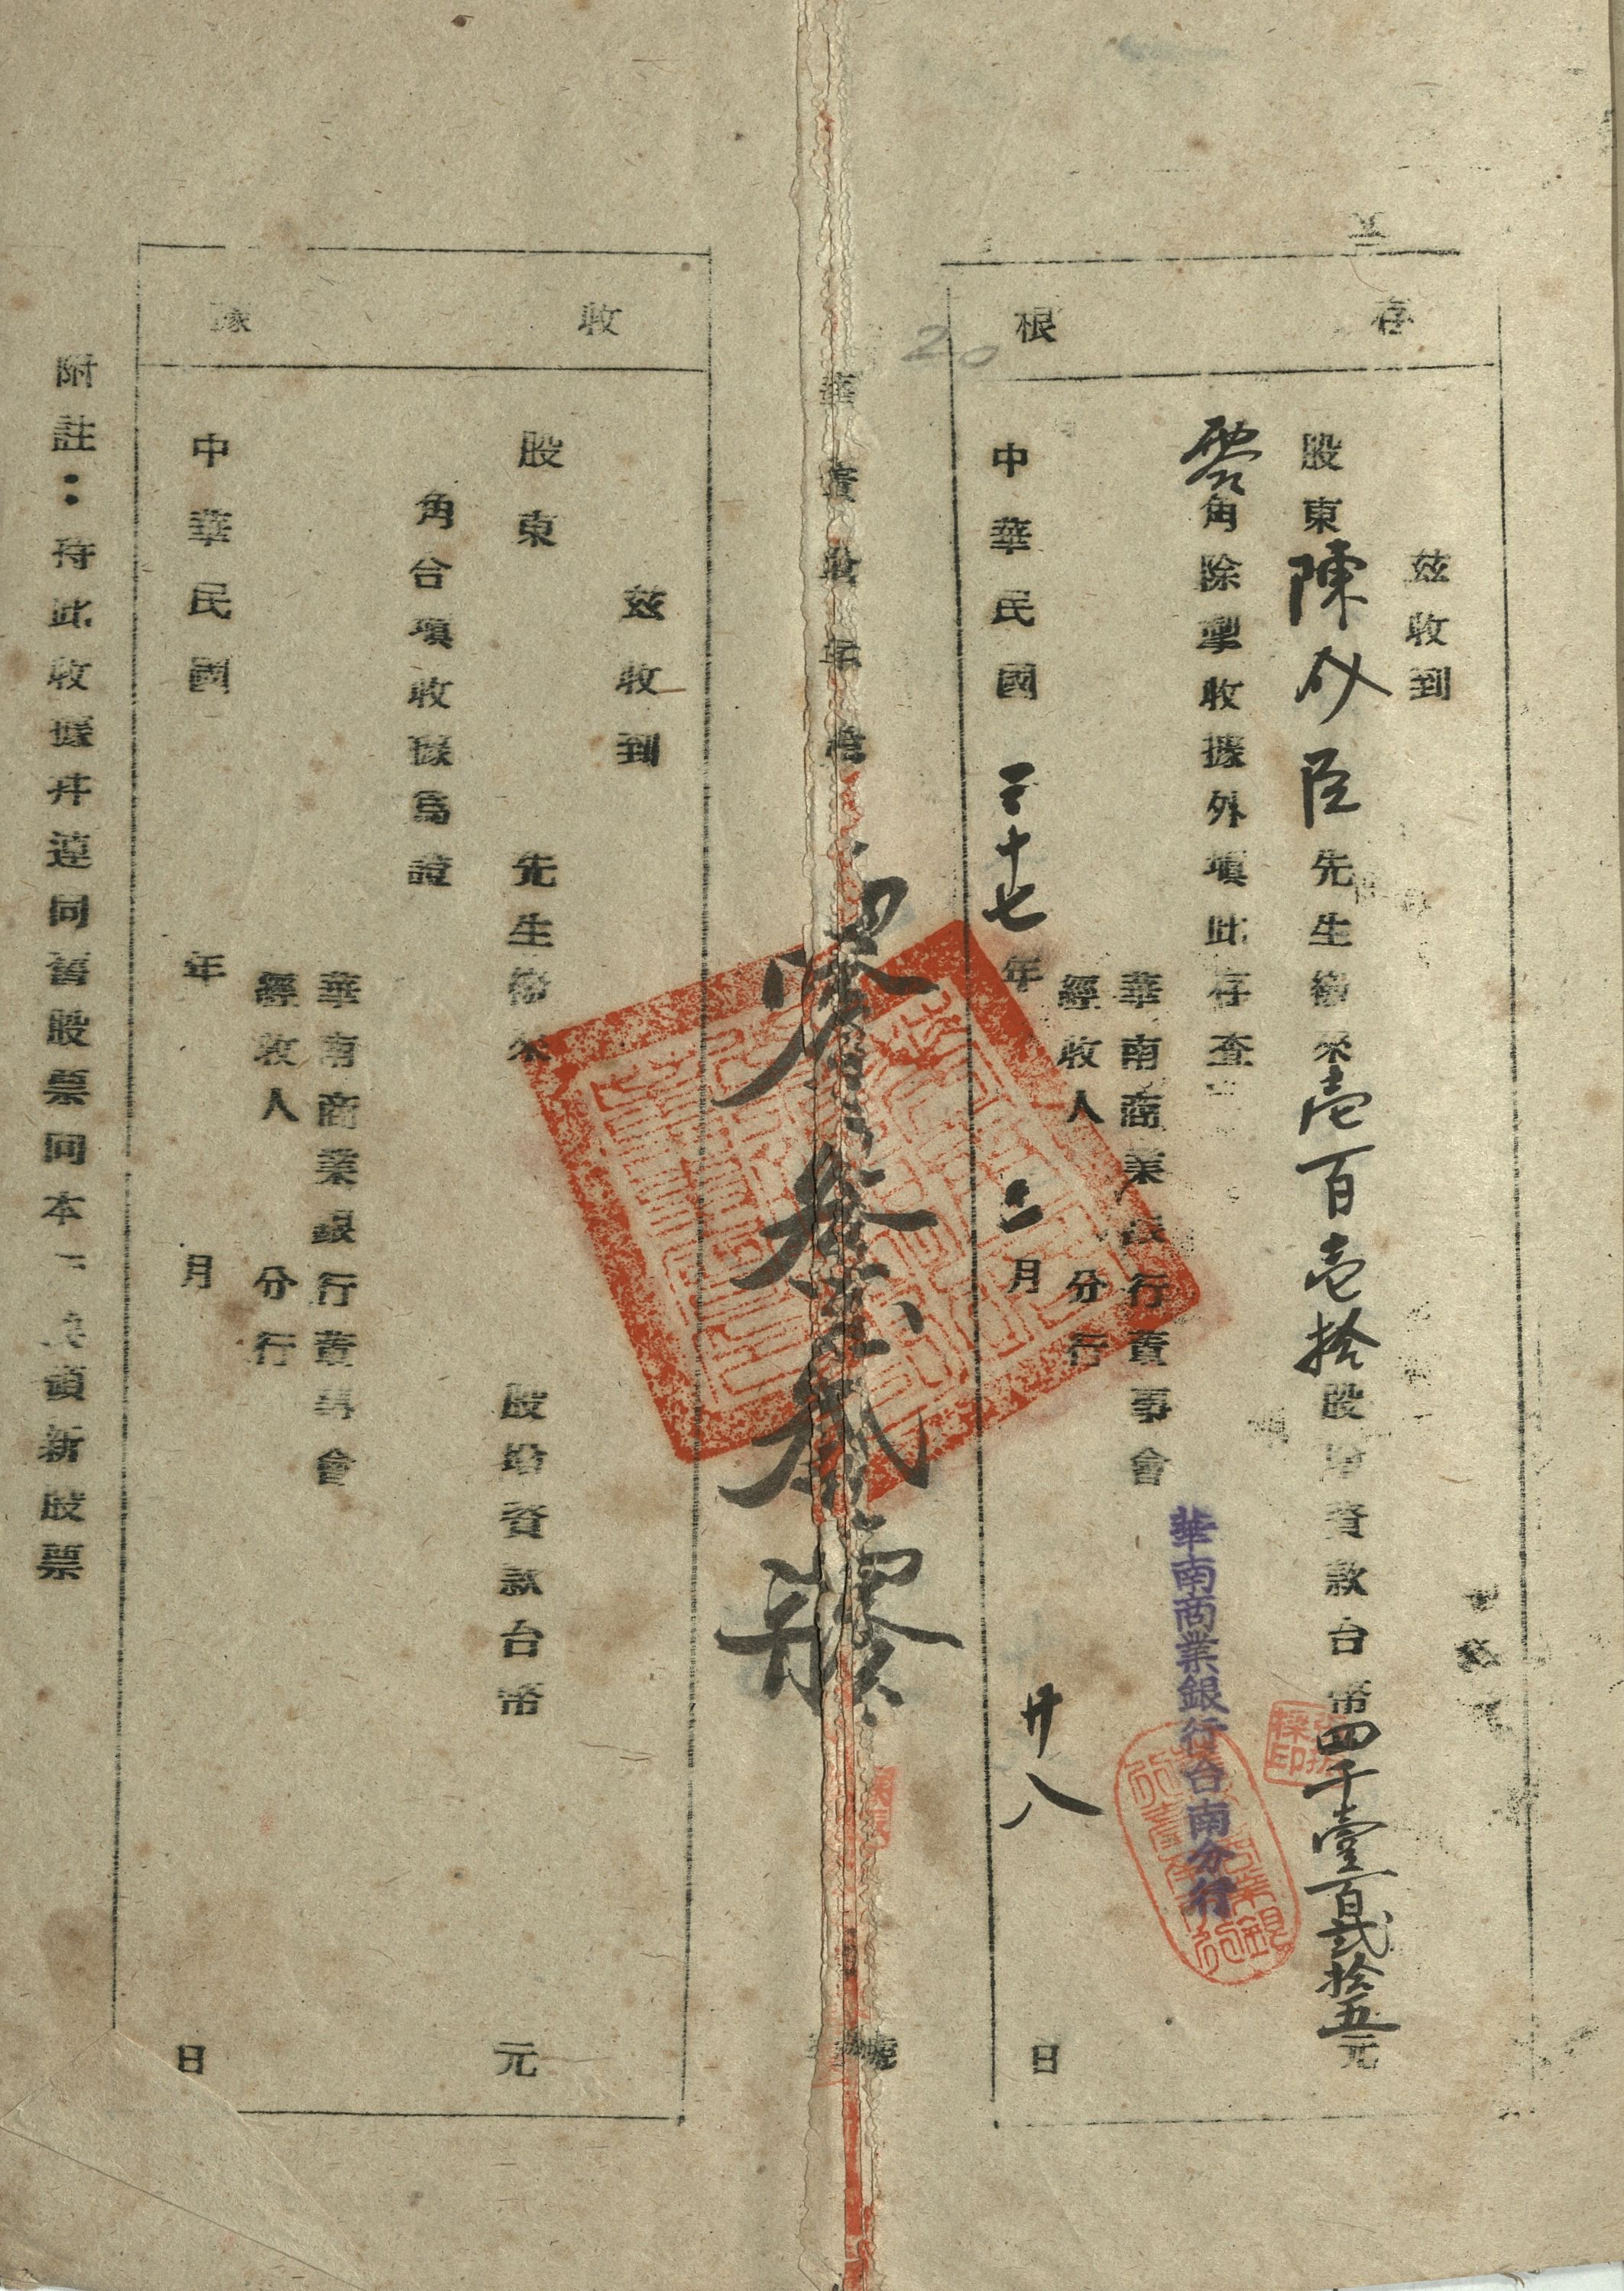 存根
茲收到
股東陳介臣先生繳來壹百壹拾股增資款台幣四千壹百貳拾五元
零角除掣收據外塡此存查
華南商業銀行董事會
經收人 分行
華南商業銀行台南分行
中華民國三十七年二月廿八日
20
華 資收字第 號
收據
茲收到
股東 先生繳來 股增資款台幣 元
角合塡收據為證
華南商業銀行董事會
經收人 分行
中華民國 年 月 日
附註：持此收據幷連同舊股票向本 換領新股票